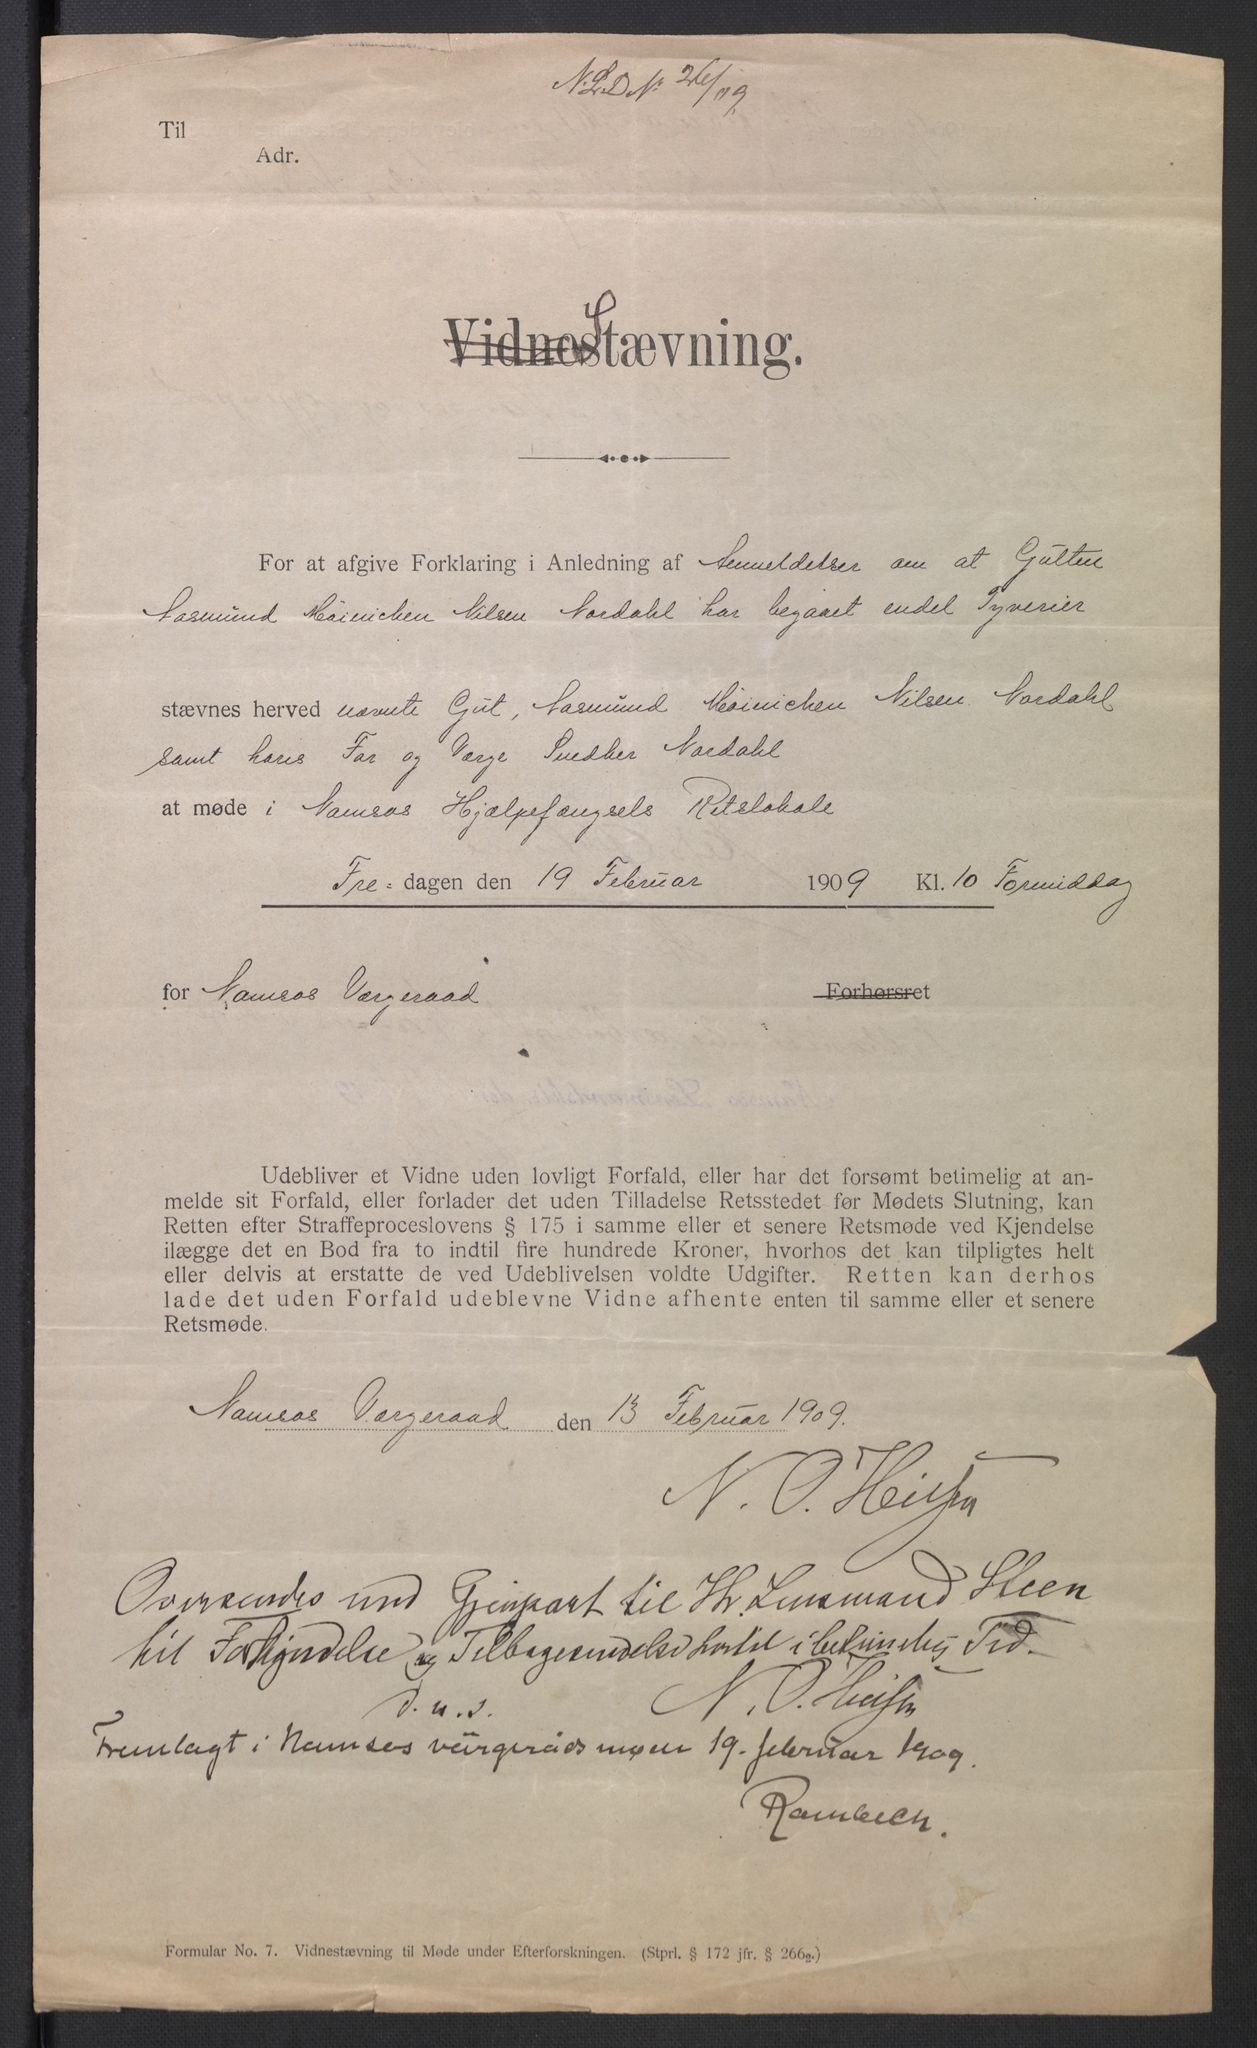 N.L.D. Nr 26/09
Til
Adr.
Vidnes Stævning.
For at afgive Forklaring i Anledning af Anmeldelser om at Gutten
Aasmund Meinichen Nilsen Nordahl har begaaet endel Tyverier
stævnes herved nævnte Gut, Aasmund Meinichen Nilsen Nordahl
samt hans Far og Værge Snedker Nordahl
at møde i Namsos Hjælpefængsels Retslokale
Fre-dagen den 19 Februar 1909 Kl. 10 Formiddag
for Namsos Værgeraad Forhørsret
Udebliver et Vidne uden lovligt Forfald, eller har det forsømt betimelig at an-
melde sit Forfald, eller forlader det uden Tilladelse Retsstedet før Mødets Slutning, kan
Retten efter Straffeproceslovens § 175 i samme eller et senere Retsmøde ved Kjendelse
ilægge det en Bod fra to indtil fire hundrede Kroner, hvorhos det kan tilpligtes helt
eller delvis at erstatte de ved Udeblivelsen voldte Udgifter. Retten kan derhos
lade det uden Forfald udeblevne Vidne afhente enten til samme eller et senere
Retsmøde.
Namsos Værgeraad den 13 Februar 1909.
N. O.
Oversendes med Gjenpart til Hr. Lensmand Steen
til Forkyndelse og Tilbagesendelse hertil i betimelig Tid.
D. u. s. N. O.
Fremlagt i Namsos værgeråds møte 19. februar 1909.
Rambech.
Formular No. 7. Vidnestævning til Møde under Efterforskningen. (Stprl. § 172 jfr. § 266₂.)